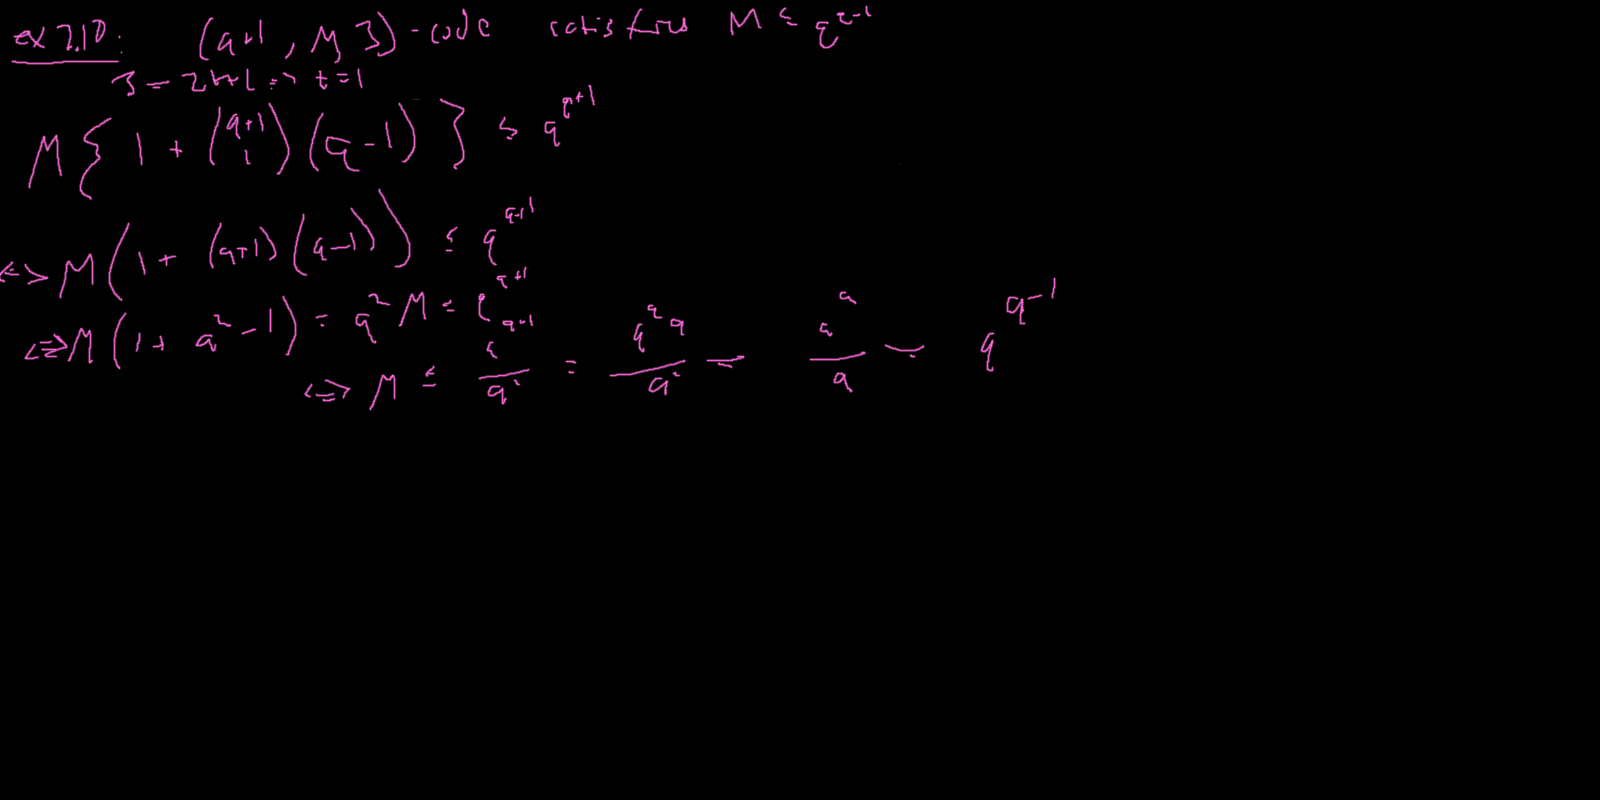 ex 2.10: (q+1, M, 3) - code satisfies M ≤ q^{q-1}
3 = 2t+1 => t=1
M { 1 + \binom{q+1}{1} (q-1) } ≤ q^{q+1}
<=> M ( 1 + (q+1)(q-1) ) ≤ q^{q+1}
<=> M ( 1 + q^2 - 1 ) = q^2 M ≤ q^{q+1}
<=> M ≤ \frac{q^{q+1}}{q^2} = \frac{q^q q}{q^2} = \frac{q^q}{q} = q^{q-1}